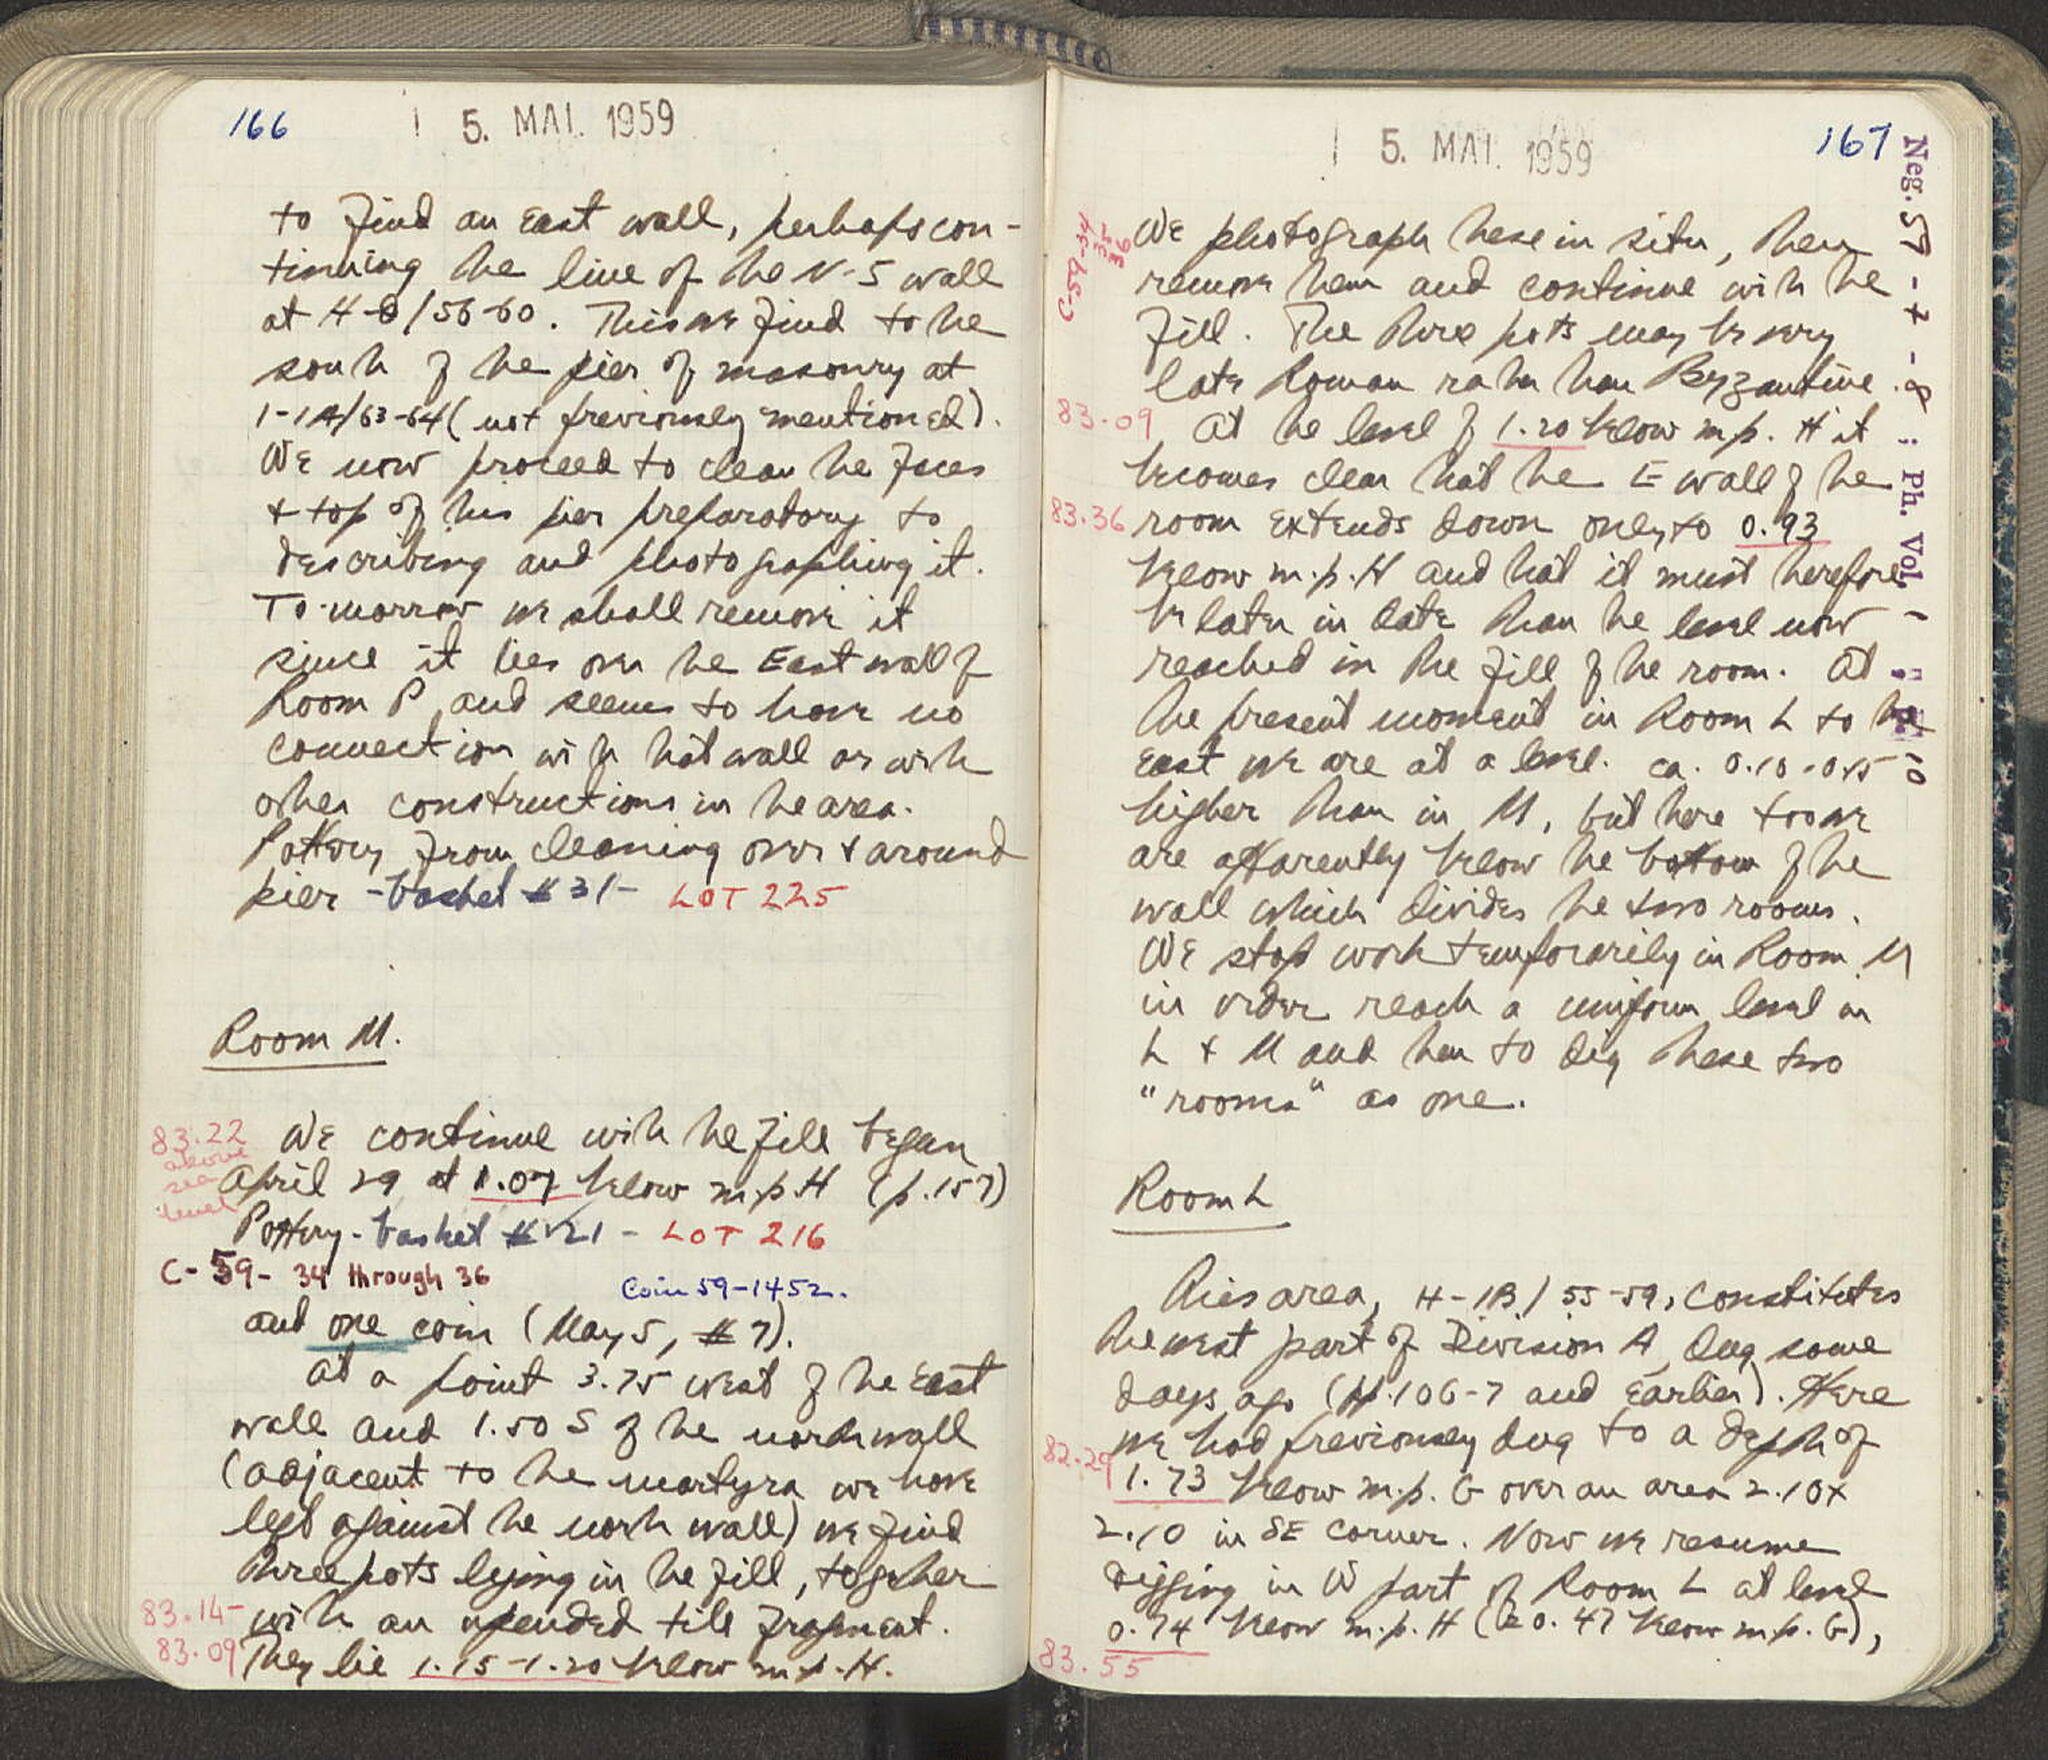 166
5. MAI. 1959
to find an East wall, perhaps con-
tinuing the line of the N-S wall
at H-θ/56-60. This we find to the
south of the pier of masonry at
1-1A/63-64 (not previously mentioned).
We now proceed to clean the faces
+ top of this pier preparatory to
describing and photographing it.
To-morrow we shall remove it
since it lies over the East wall of
Room P and seems to have no
connection with that wall or with
other constructions in the area.
Pottery from cleaning over + around
pier - basket #31- LOT 225
Room M.
83.22
above
sea
level
We continue with the fill begun
April 29 at 1.07 below m.p. H (p.157)
Pottery - basket #21 - LOT 216
C-59-34 through 36
Coin 59-1452.
and one coin (May 5, #7).
At a point 3.75 west of the East
wall and 1.50 S of the north wall
(adjacent to the martyra we have
left against the north wall) we find
three pots lying in the fill, together
83.14-
with an upended tile fragment.
83.09
They lie 1.15-1.20 below m.p. H.
5. MAI. 1959
167
Neg. 57-7-8; Ph. Vol.
10
C-59-34
35
36
We photograph these in situ, then
remove them and continue with the
fill. The three pots may be very
late Roman rather than Byzantine.
83.09
At the level of 1.20 below m.p. H it
becomes clear that the E wall of the
83.36
room extends down only to 0.93
below m.p. H and that it must therefore
be later in date than the level now
reached in the fill of the room. At
the present moment in Room L to the
East we are at a level ca. 0.10-0.15
higher than in M, but here too we
are apparently below the bottom of the
wall which divides the two rooms.
We stop work temporarily in Room M
in order reach a uniform level in
L + M and then to dig these two
"rooms" as one.
Room L
This area, H-1B/55-59, constitutes
the west part of Division A, dug some
days ago (pp.106-7 and earlier). Here
we had previously dug to a depth of
82.29
1.73 below m.p. G over an area 2.10x
2.10 in SE corner. Now we resume
digging in W part of Room L at level
0.74 below m.p. H (= 0.47 below m.p. G),
83.55